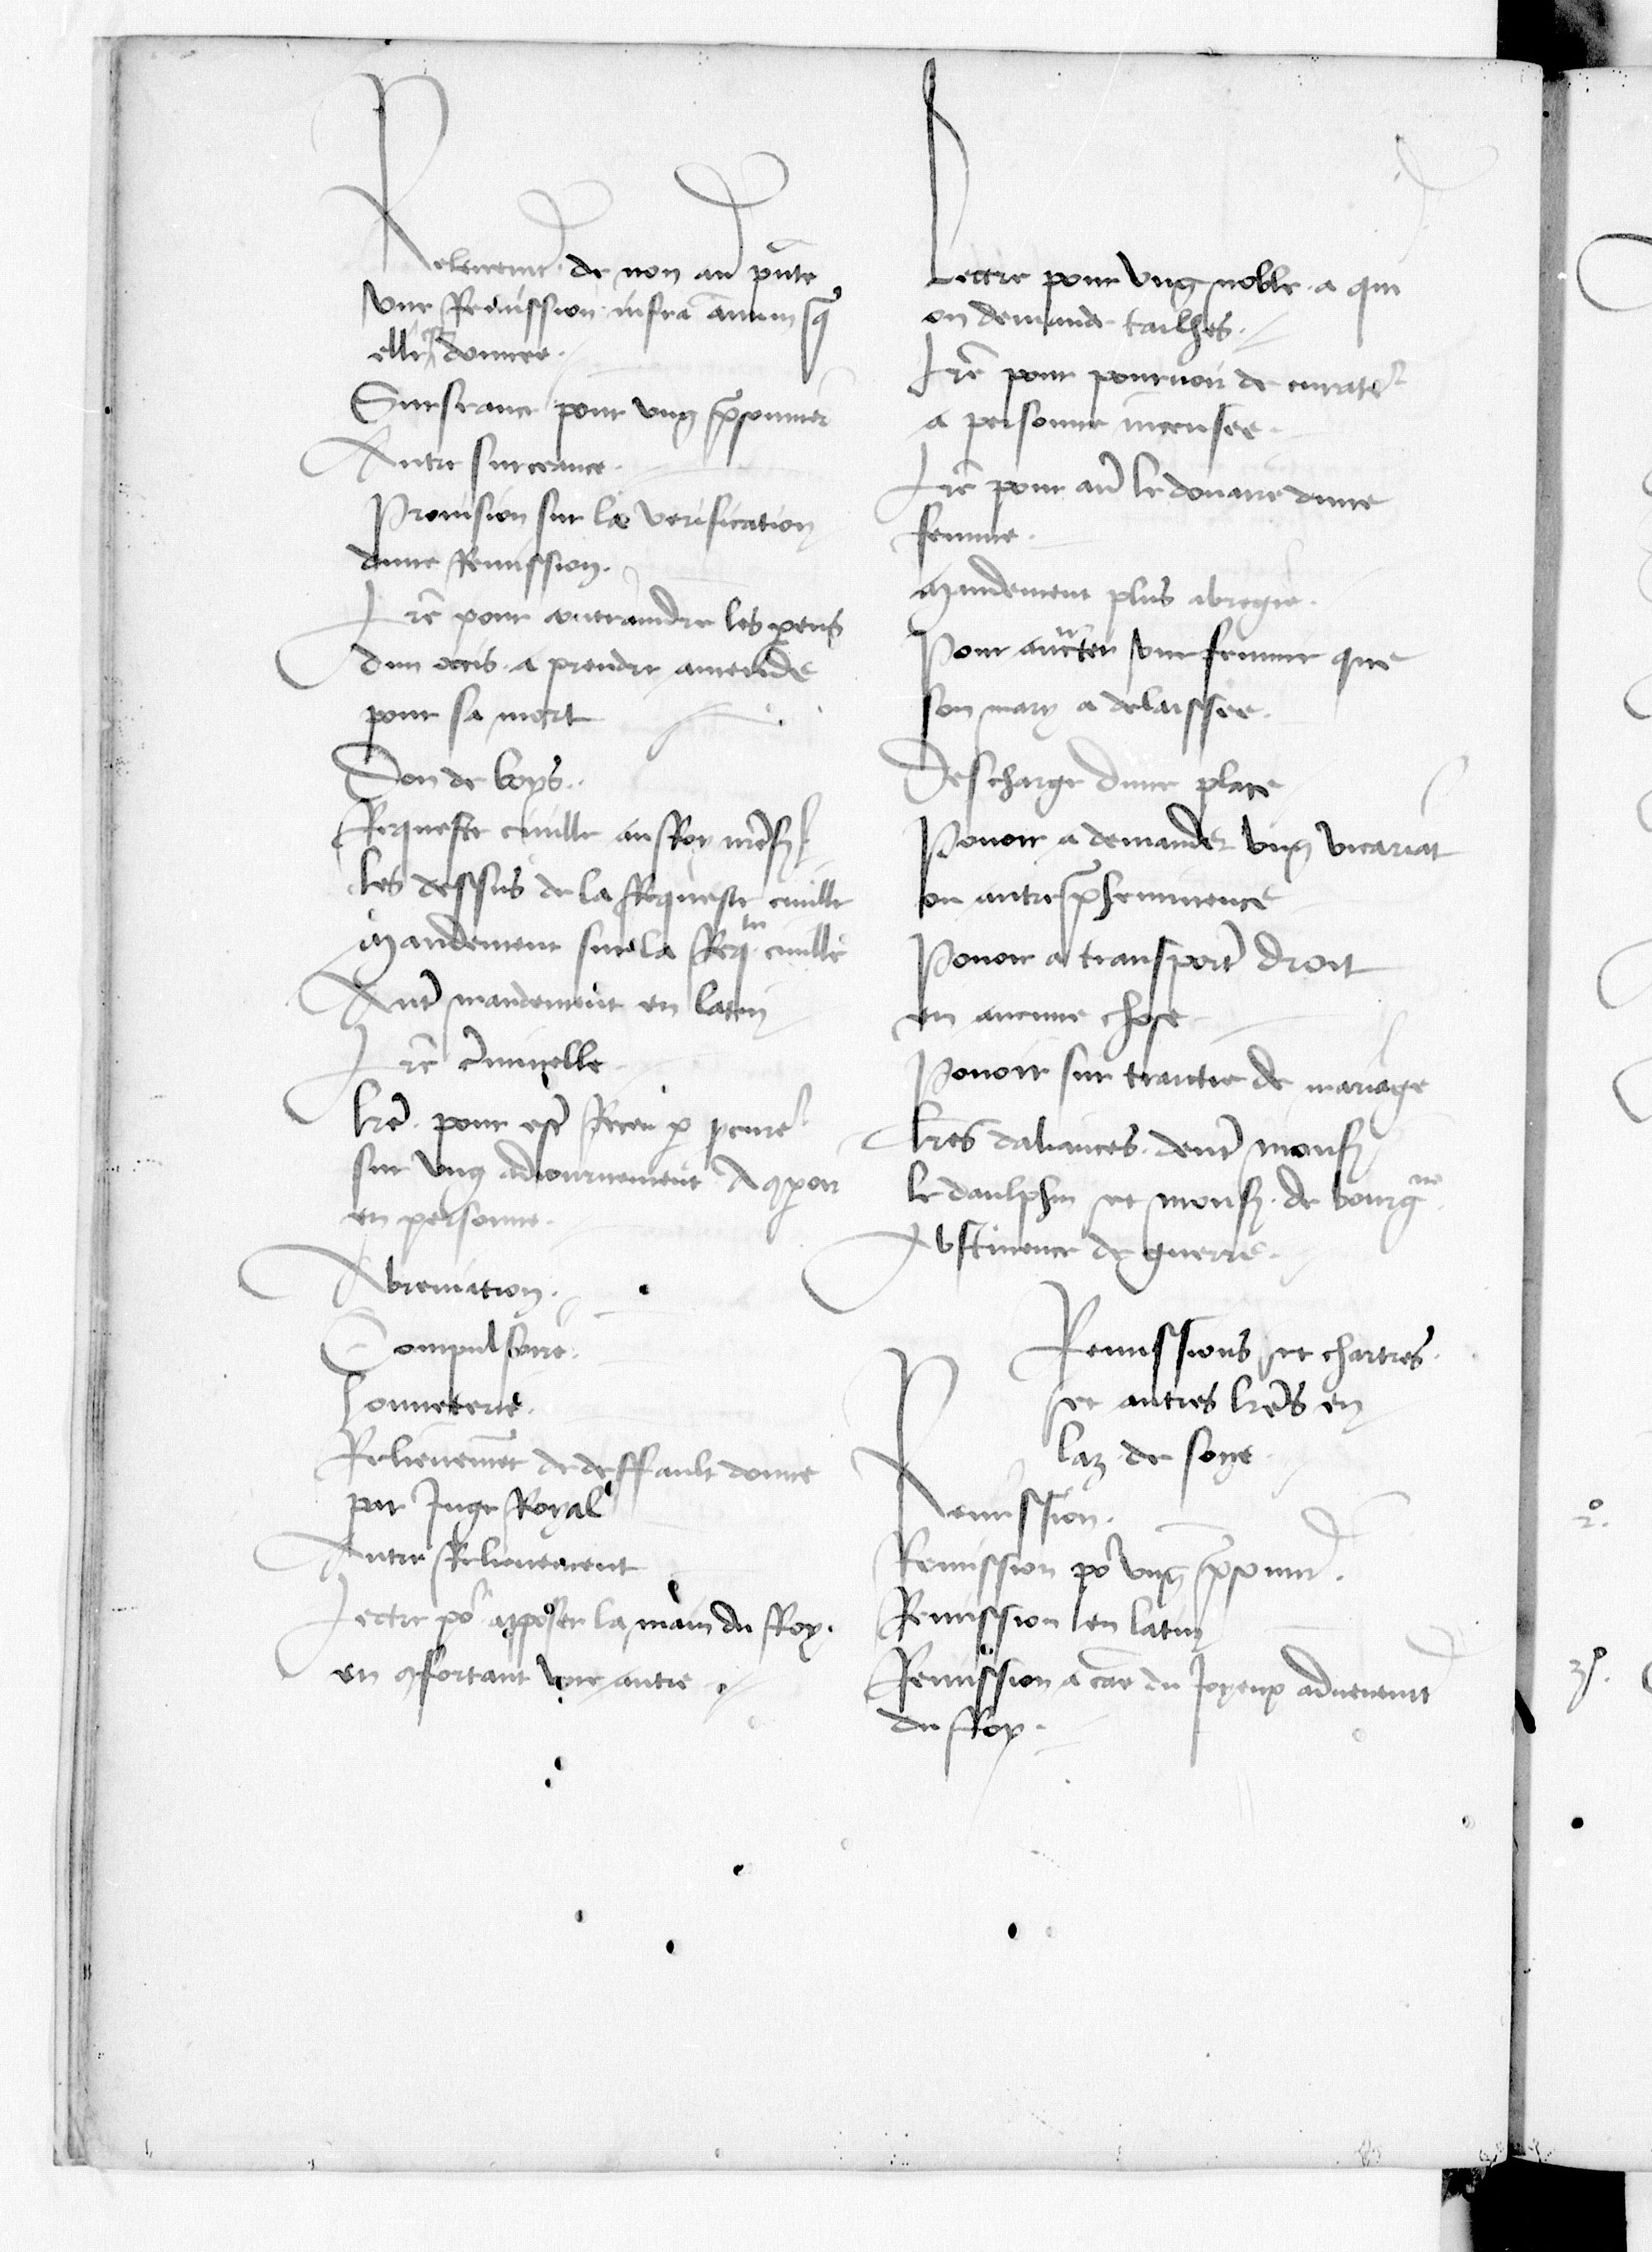 Relevemt de non avr pnte
une Remission infra annum q
elle est donnee.
Surseance pour ung prisonnier
Autre surceance.
Provision sur la verification
dune Remission.
Lre pour contraindre les parens
dun occis a prendre amende
pour sa mort
Don de boys.
Requeste civille au Roy nre sr
Les dessus de la Requeste civille
Mandement sur la Reqte civille
Autr mandement en latin
Lre criminelle.
Lre pour estr Receu p procureur
sur ung adiournement A comparoir
en personne.
Abreviation.
Compulsoire.
Conneterie.
Relievement de deffault donne
par Juge Royal
Autre Relievement
Lettre por apposer la main du Roy.
en confortant une autre.
Lettre pour ung noble a qui
on demande tailhes.
Lre pour pourvoir de curater
a personne incensee.
Lre pour avr le douaire dune
femme.
Mandement plus abregie.
Pour aucter une femme que
son mary a delaissee.
Descharge dune place
Povoir a demander ung vicariat
ou autre preheminence
Povoir a transportr droit
en aucune chose
Povoir sur traictie de mariage
Lres daliances dentr monsr
le daulphin et monsr de bourgne
Abstinence de guerre.
Remissions et chartres.
et autres lres en
laz de soye.
Remission.
Remission por ung prisonnier.
Remission en latin
Remission a cae du Joyeux advenemt
du Roy.
2o.
3o.